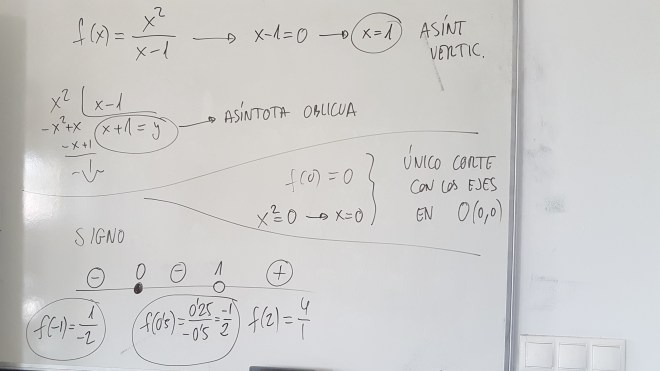 f(x) = x²/(x-1) → x-1=0 → x=1 ASÍNT VERTIC.
x² | x-1
-x²+x x+1 = y → ASÍNTOTA OBLICUA
-x+1
f(0) = 0
x²=0 → x=0
ÚNICO CORTE
CON LOS EJES
EN O(0,0)
SIGNO
- 0 - 1 +
f(-1) = 1/-2 f(0'5) = 0'25/-0'5 = -1/2 f(2) = 4/1